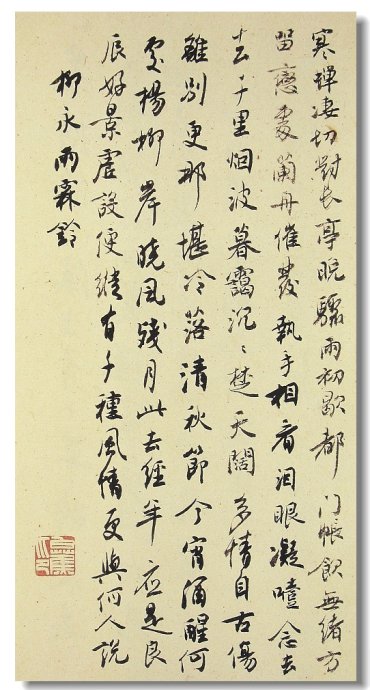 寒蟬凄切對長亭晚驟雨初歇都門帳飲無緒方
留戀處蘭舟催發執手相看泪眼凝噎念去
去千里烟波暮靄沉々楚天闊多情自古傷
離別更那堪冷落清秋節今宵酒醒何
處楊柳岸曉風殘月此去經年應是良
辰好景虛設便縱有千種風情更與何人說
柳永雨霖鈴